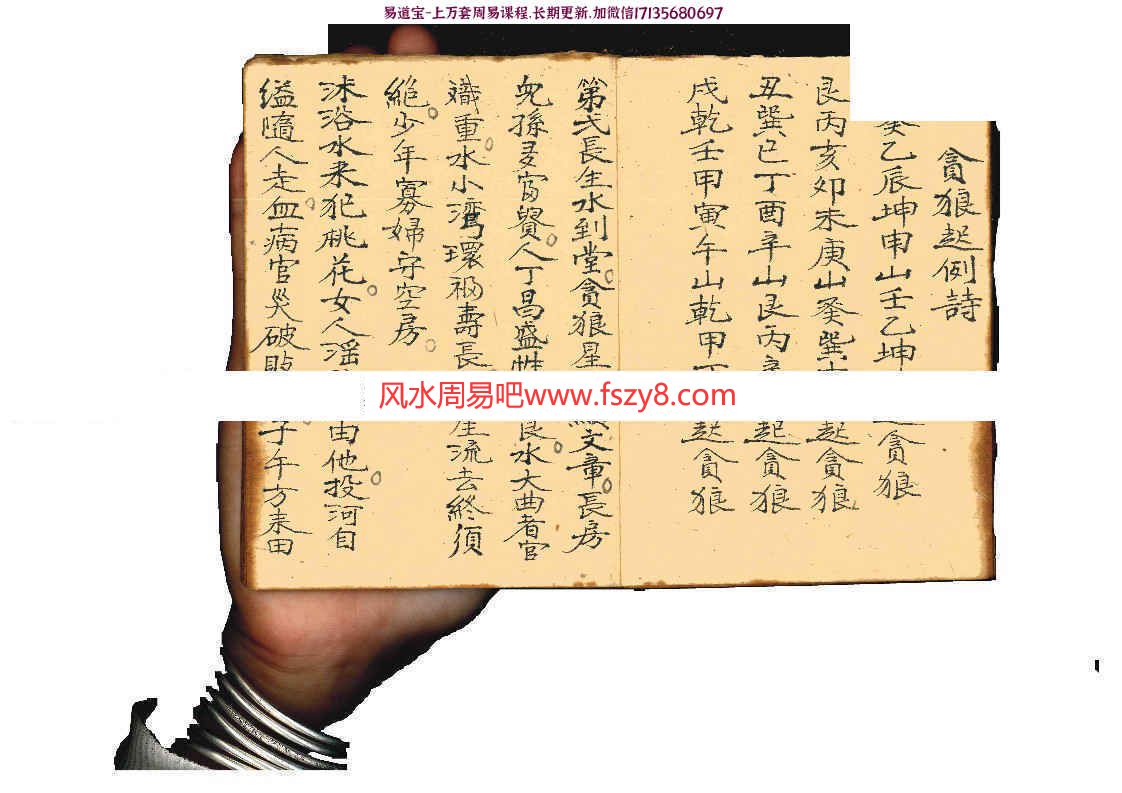 易道宝-上万套周易课程.长期更新.加微信17135680697
貪狼起例詩
癸乙辰坤申山壬乙坤
貪狼
艮丙亥卯未庚山癸巽
起貪狼
丑巽巳丁酉辛山艮丙辛
起貪狼
戌乾壬甲寅午山乾甲丁
起貪狼
第弍長生水到堂貪狼星
文章長房
兒孫多富貴人丁昌盛
良水大曲者官
職重水小灣環福壽長
流去終須
絕少年寡婦守空房
沐浴水来犯桃花女人淫
由他投河自
縊隨人走血病官災破
子午方来田
风水周易吧www.fszy8.com